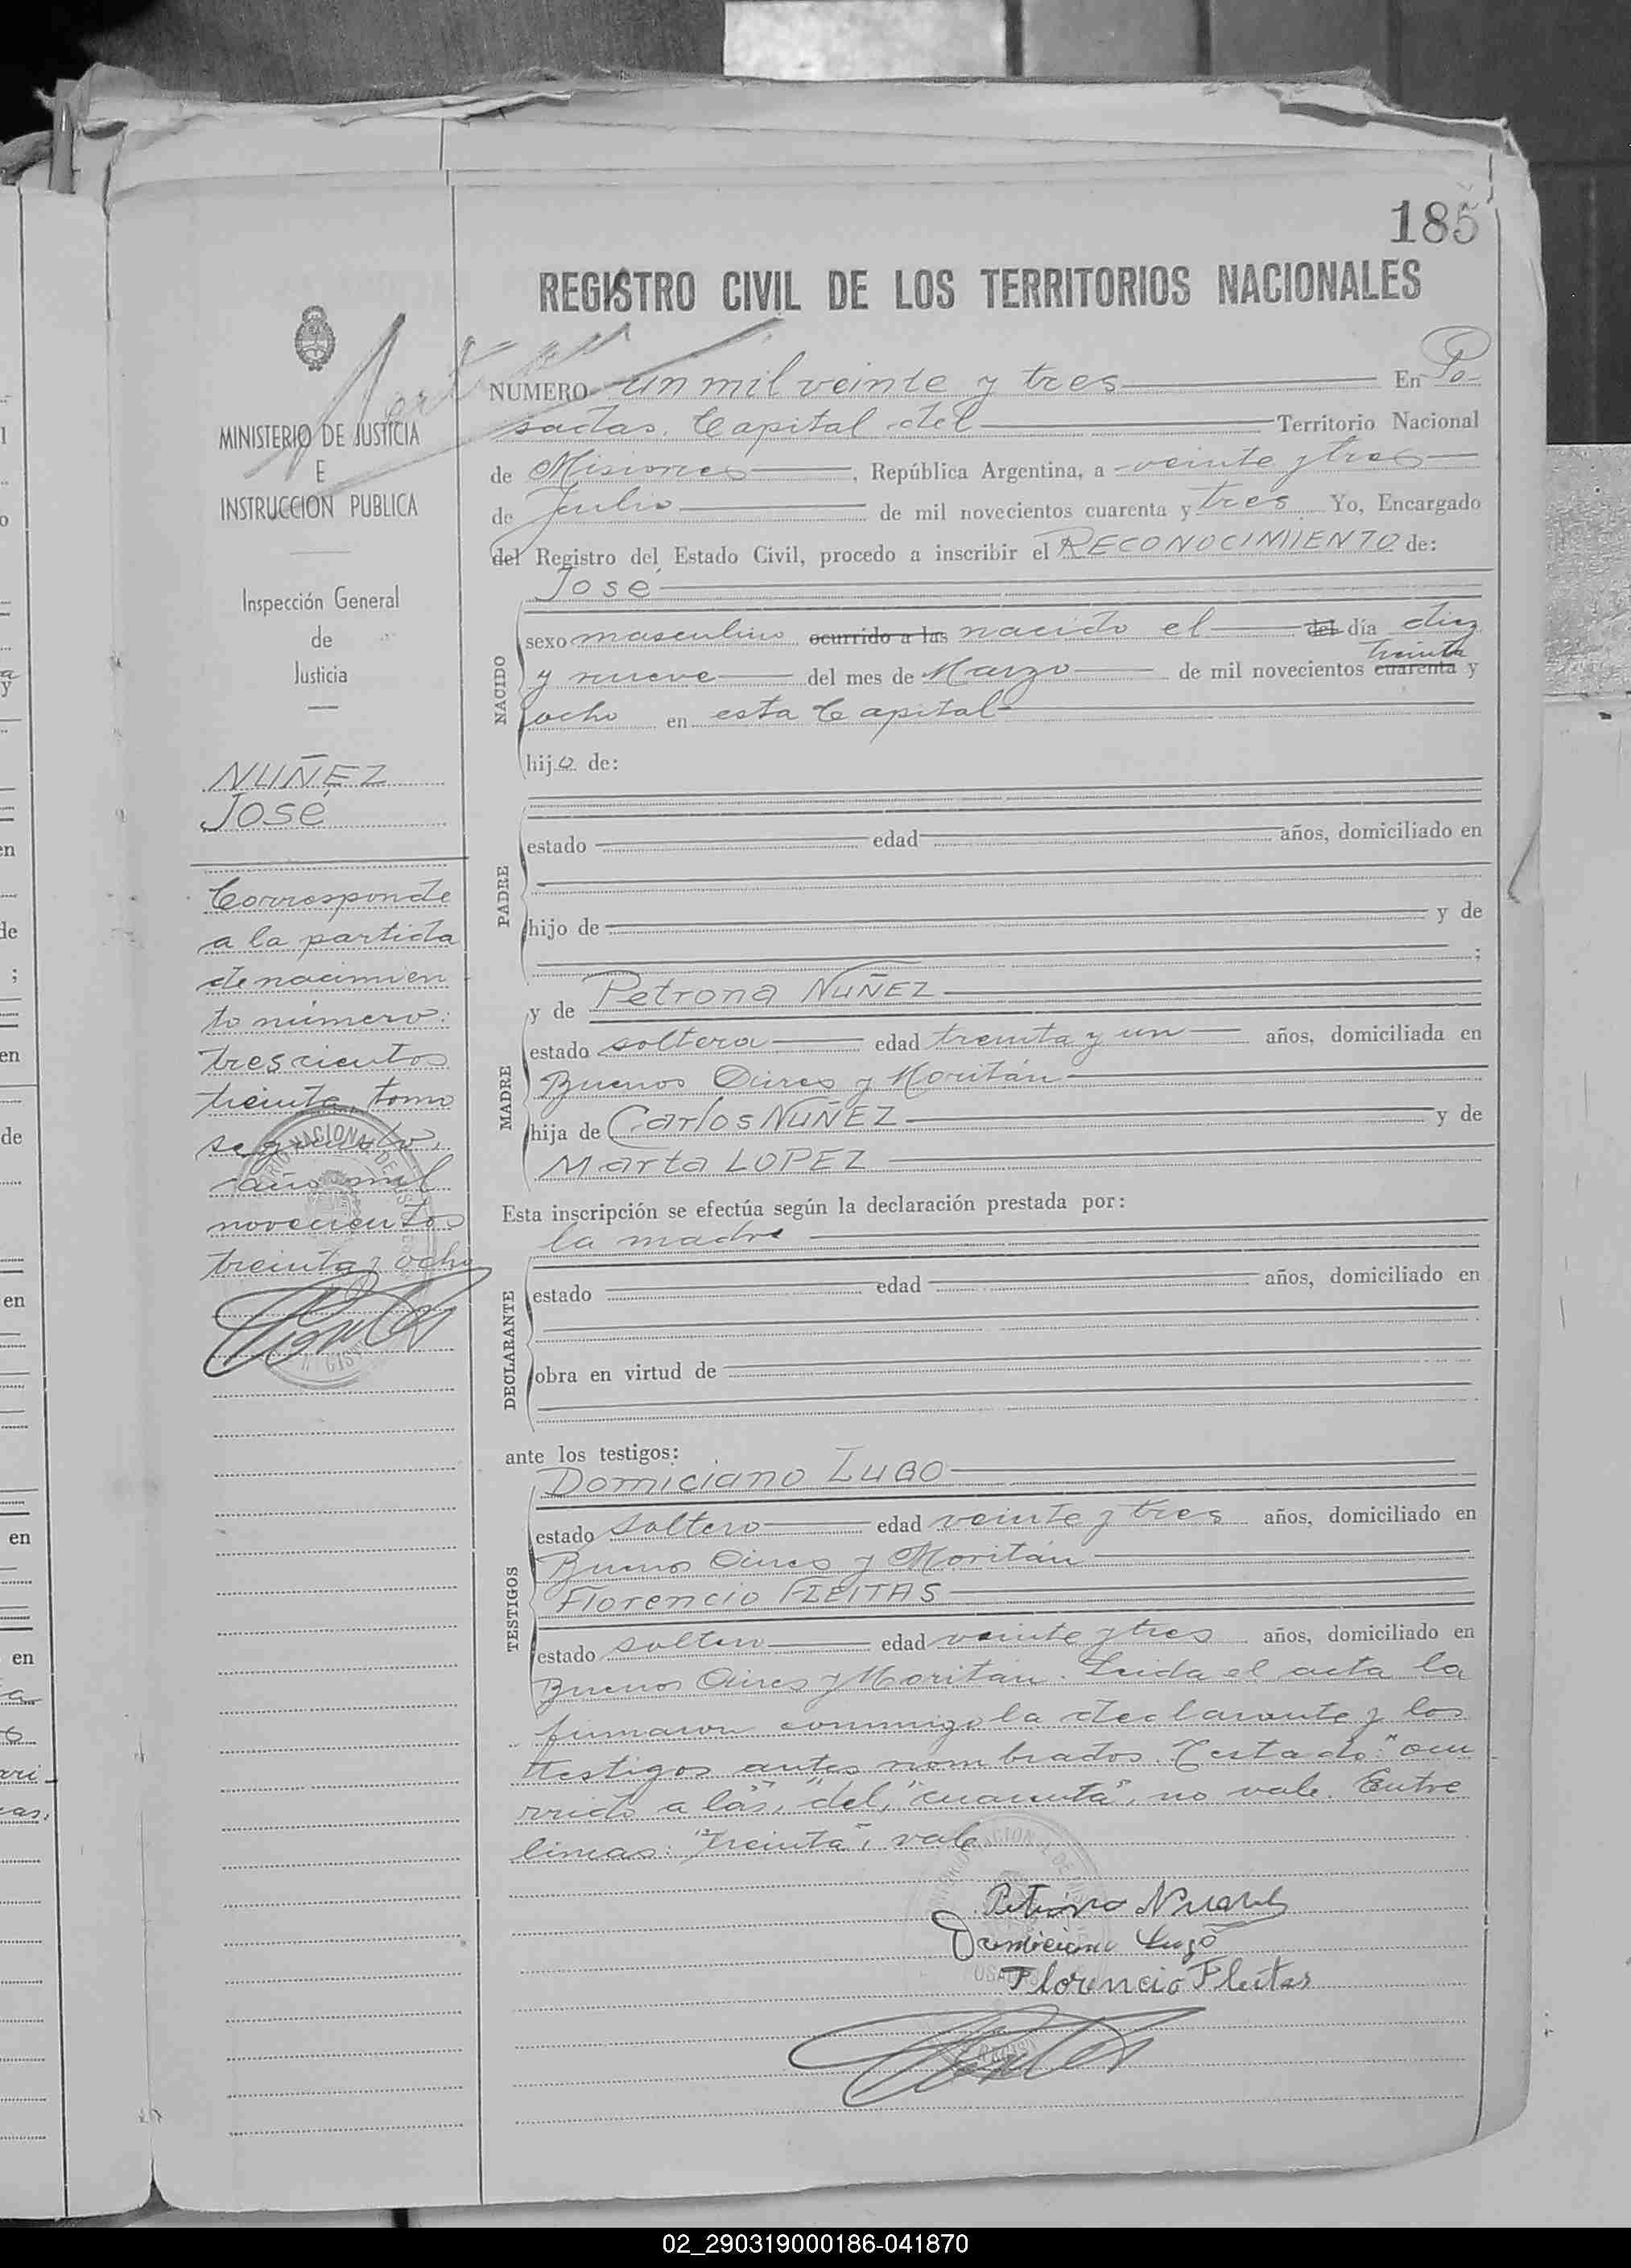 185
REGISTRO CIVIL DE LOS TERRITORIOS NACIONALES
MINISTERIO DE JUSTICIA
E
INSTRUCCION PUBLICA
Inspección General
de
Justicia
NUÑEZ
José
Corresponde
a la partida
de nacimien
to número:
trescientos
treinta, tomo
segundo,
año mil
novecientos
treinta y ocho
NUMERO un mil veinte y tres En Po-
sadas, Capital del Territorio Nacional
de Misiones, República Argentina, a veinte y tres
de Julio de mil novecientos cuarenta y tres. Yo, Encargado
del Registro del Estado Civil, procedo a inscribir el RECONOCIMIENTO de:
José
NACIDO
sexo masculino ocurrido a las nacido el del día diez
treinta
y nueve del mes de Marzo de mil novecientos cuarenta y
ocho en esta Capital
hijo de:
PADRE
estado edad años, domiciliado en
hijo de y de
;
MADRE
y de Petrona NUÑEZ
estado soltera edad treinta y un años, domiciliada en
Buenos Aires y Moritán
hija de Carlos NUÑEZ y de
Marta LOPEZ
Esta inscripción se efectúa según la declaración prestada por:
la madre
DECLARANTE
estado edad años, domiciliado en
obra en virtud de
ante los testigos:
TESTIGOS
Domiciano LUGO
estado soltero edad veinte y tres años, domiciliado en
Buenos Aires y Moritán
Florencio FLEITAS
estado soltero edad veinte y tres años, domiciliado en
Buenos Aires y Moritán. Leida el acta la
firmaron conmigo la declarante y los
testigos antes nombrados. Testado: "ocu
rrido a las", "del", "cuarenta", no vale. Entre
lineas: "treinta", vale
Petrona Nuñez
Domiciano Lugo
Florencio Fleitas
02_290319000186-041870